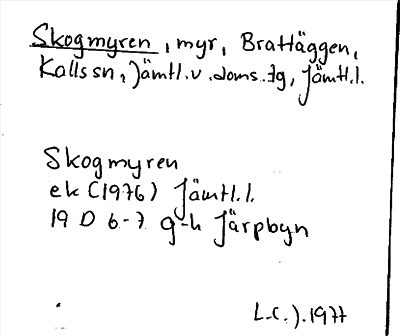 Skogmyren, myr, Brattäggen,
Kalls sn, Jämtl.v.doms.tg, Jämtl.l.
Skogmyren
ek (1976) Jämtl.l.
19 D 6-7 g-h Järpbyn
L.C.J.1977